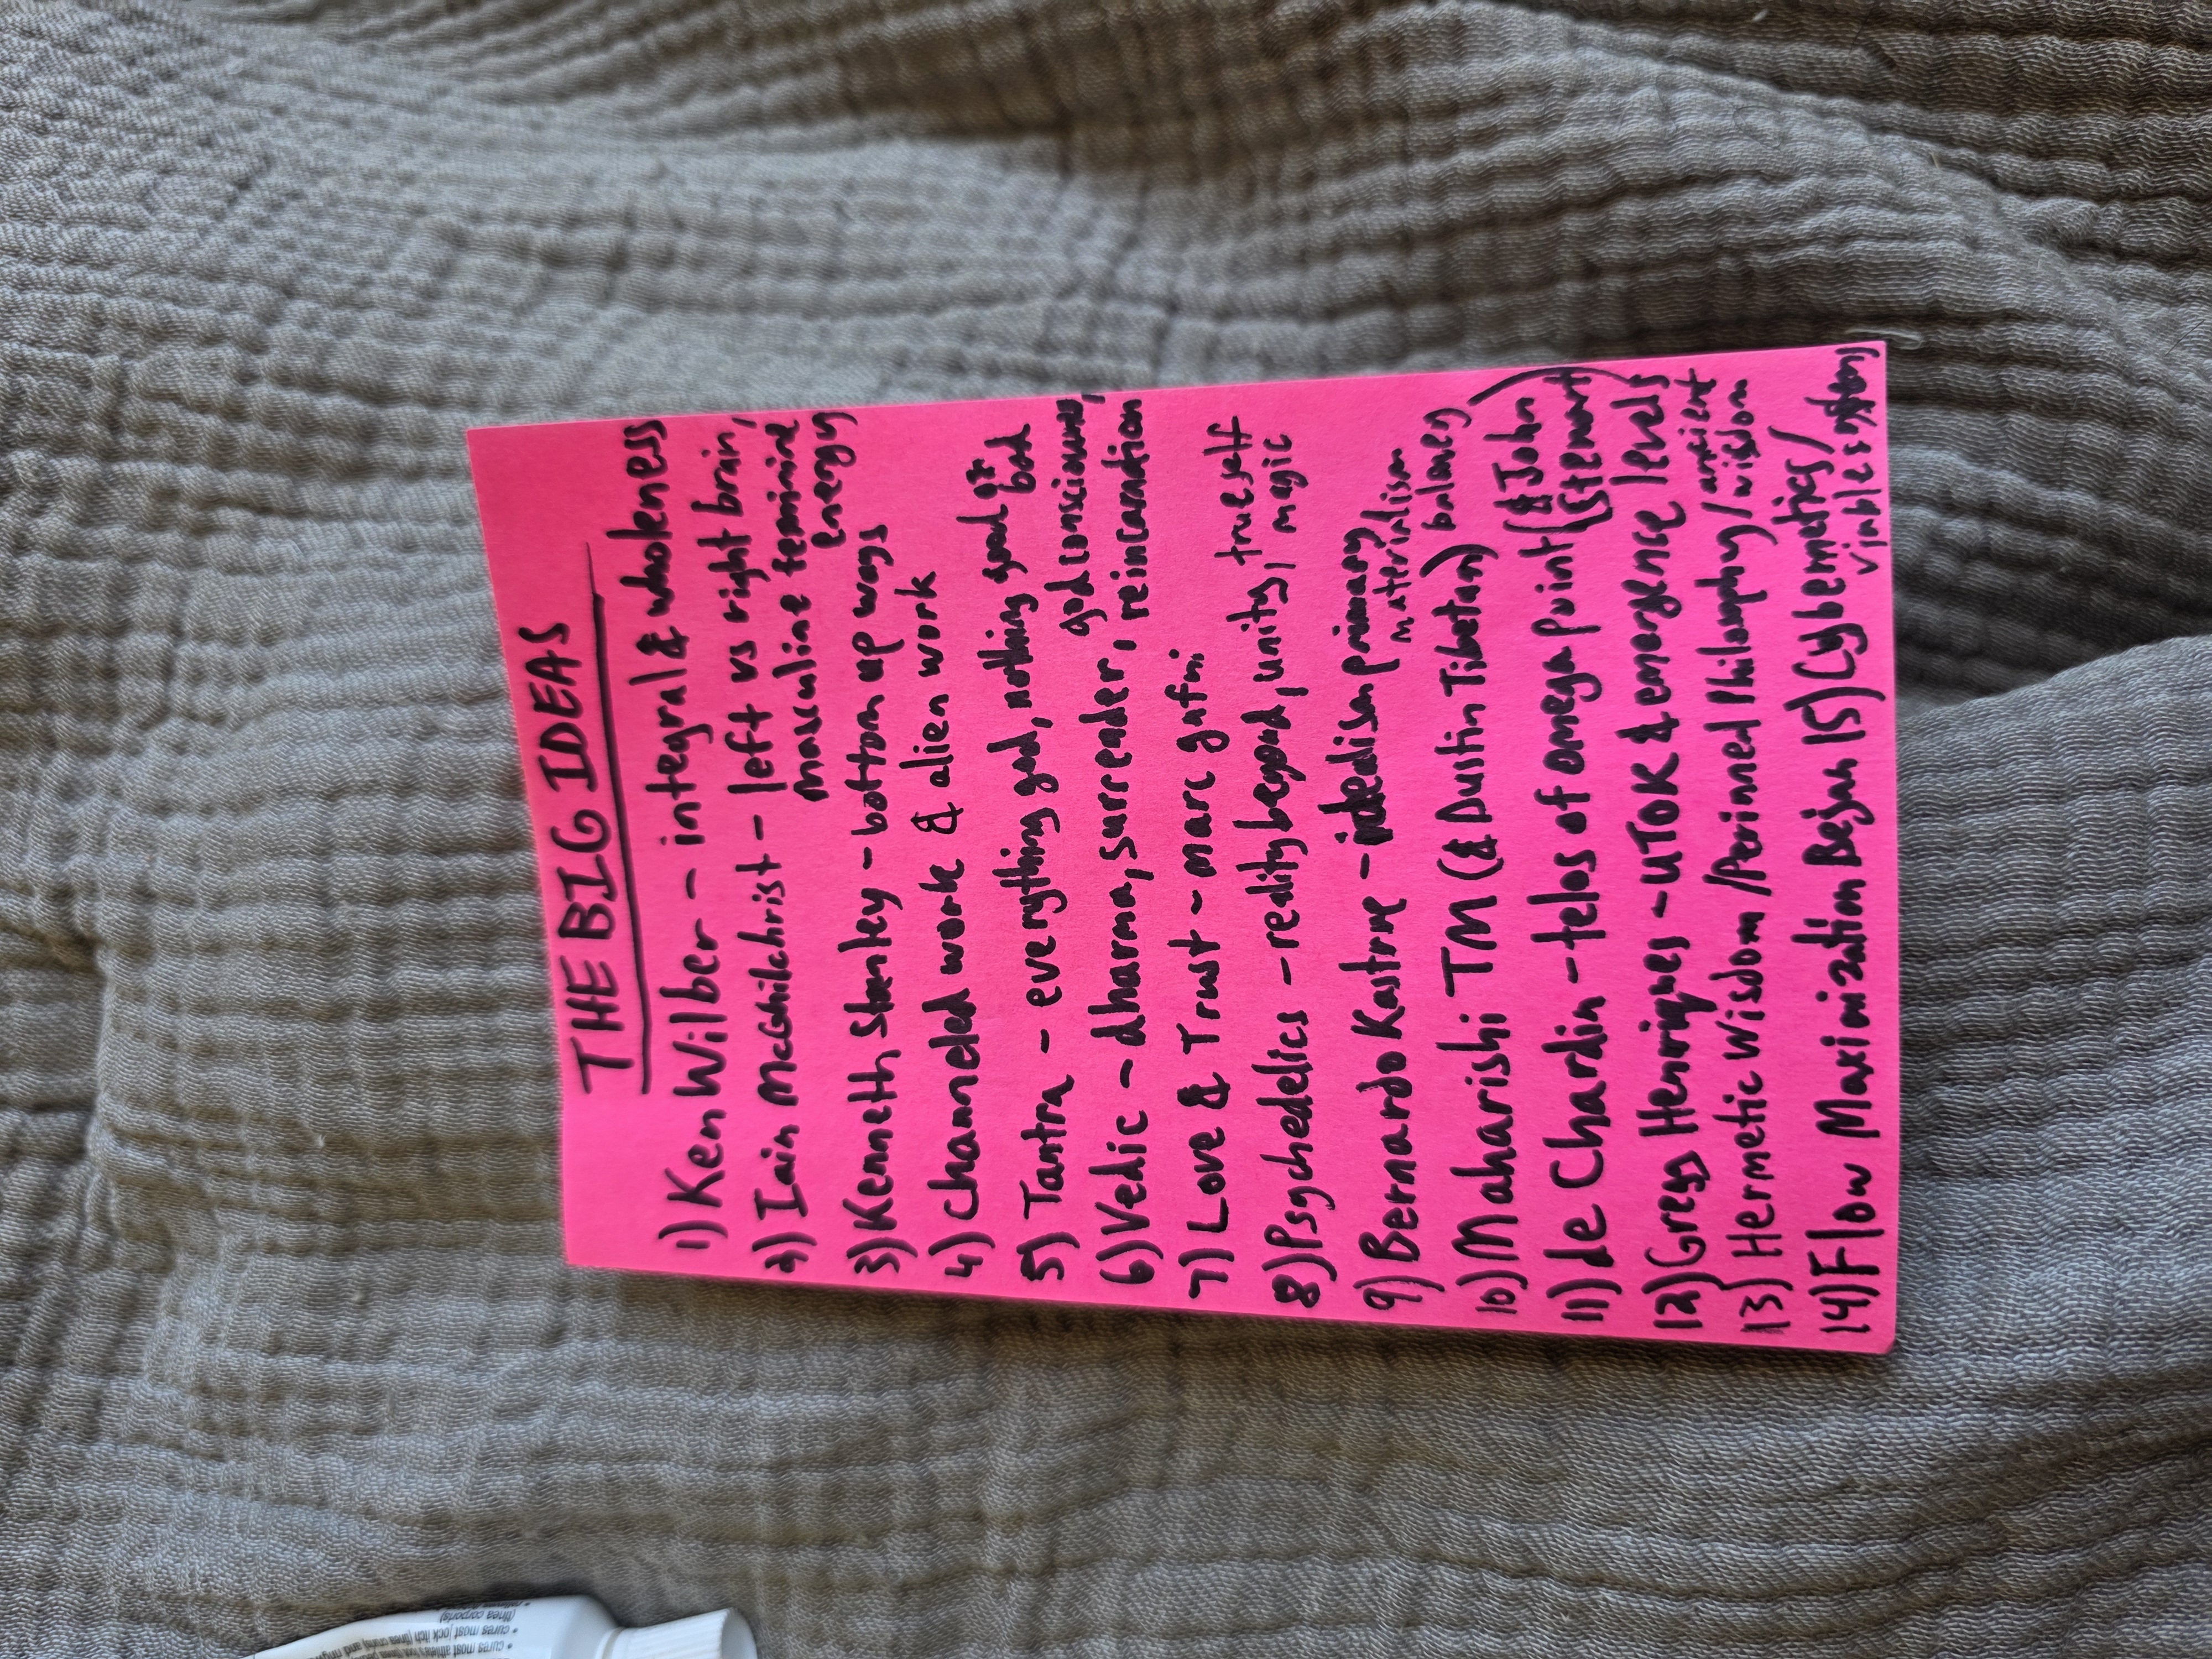 THE BIG IDEAS
1) Ken Wilber - integral & wholeness
2) Iain McGhilchrist - left vs right brain,
masculine feminine
energy
3) Kenneth Stanley - bottom up ways
4) Channeled work & alien work
5) Tantra - everything god, nothing good or
bad
6) Vedic - dharma, surrender, god consciousness,
reincarnation
7) Love & Trust - marc gafni
8) Psychedelics - reality beyond, unity, true self
magic
9) Bernardo Kastrup - idealism primary
materialism
baloney
10) Maharishi - TM (& Dustin Tibetan)
11) de Chardin - telos of omega point (& John
Stewart)
12) Gregg Henriques - UTOK & emergence levels
13) Hermetic Wisdom / Perinned Philosophy / ancient
wisdom
14) Flow Maximization Bejan 15) Cybernetics /
viable system
• cures most athlete's foot
• cures most jock itch (tinea cruris) and
(tinea corporis)